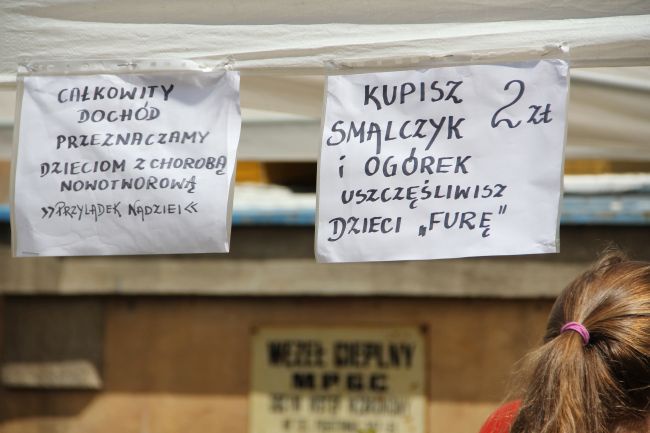 CAŁKOWITY
DOCHÓD
PRZEZNACZAMY
DZIECIOM Z CHOROBĄ
NOWOTWOROWĄ
»PRZYLĄDEK NADZIEI«
KUPISZ 2 ZŁ
SMALCZYK
i OGÓREK
USZCZĘŚLIWISZ
DZIECI „FURĘ"
WĘZEŁ CIEPLNY
MPGC